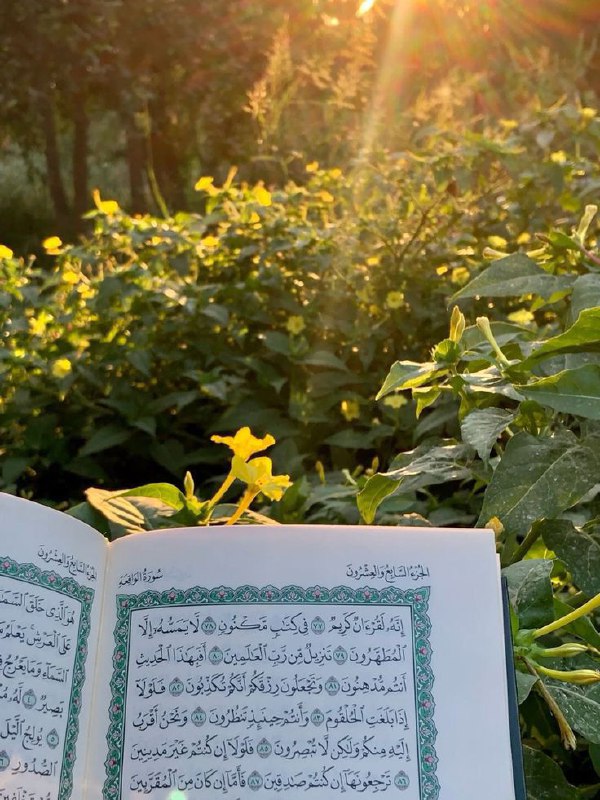 الجُزءُ السَّابِعُ وَالعِشْرُونَ
سُورَةُ الوَاقِعَة
إِنَّهُۥ لَقُرْءَانٌ كَرِيمٌ ٧٧ فِي كِتَٰبٍ مَّكْنُونٍ ٧٨ لَّا يَمَسُّهُۥٓ إِلَّا
ٱلْمُطَهَّرُونَ ٧٩ تَنزِيلٌ مِّن رَّبِّ ٱلْعَٰلَمِينَ ٨٠ أَفَبِهَٰذَا ٱلْحَدِيثِ
أَنتُم مُّدْهِنُونَ ٨١ وَتَجْعَلُونَ رِزْقَكُمْ أَنَّكُمْ تُكَذِّبُونَ ٨٢ فَلَوْلَآ
إِذَا بَلَغَتِ ٱلْحُلْقُومَ ٨٣ وَأَنتُمْ حِينَئِذٍ تَنظُرُونَ ٨٤ وَنَحْنُ أَقْرَبُ
إِلَيْهِ مِنكُمْ وَلَٰكِن لَّا تُبْصِرُونَ ٨٥ فَلَوْلَآ إِن كُنتُمْ غَيْرَ مَدِينِينَ
٨٦ تَرْجِعُونَهَآ إِن كُنتُمْ صَٰدِقِينَ ٨٧ فَأَمَّآ إِن كَانَ مِنَ ٱلْمُقَرَّبِينَ
الجُزءُ السَّابِعُ وَالعِشْرُونَ
هُوَ ٱلَّذِي خَلَقَ
عَلَى ٱلْعَرْشِ يَعْلَمُ
ٱلسَّمَآءِ وَمَا يَعْرُجُ
بَصِيرٌ ٤ لَّهُۥ
٥ يُولِجُ ٱلَّيْلَ
ٱلصُّدُورِ ٦